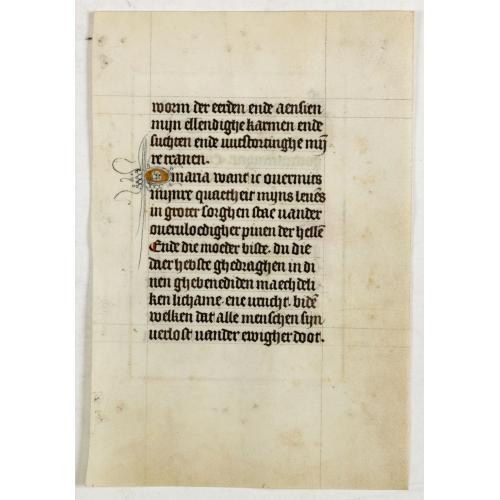 worm der eerden ende aensien
mijn ellendighe karmen ende
suchten ende wtstortinghe mij
re tranen.
O maria want ic ouermits
mijnre quaetheit mijns leuēs
in groter sorghen stae vander
oueruloedigher pinen der hellē
Ende die moeder biste. du die
daer hebste ghedraghen in di
nen ghebenediden maechdeli
ken lichame. ene vrucht. bidē
welken dat alle menschen sijn
verlost vander ewigher doot.